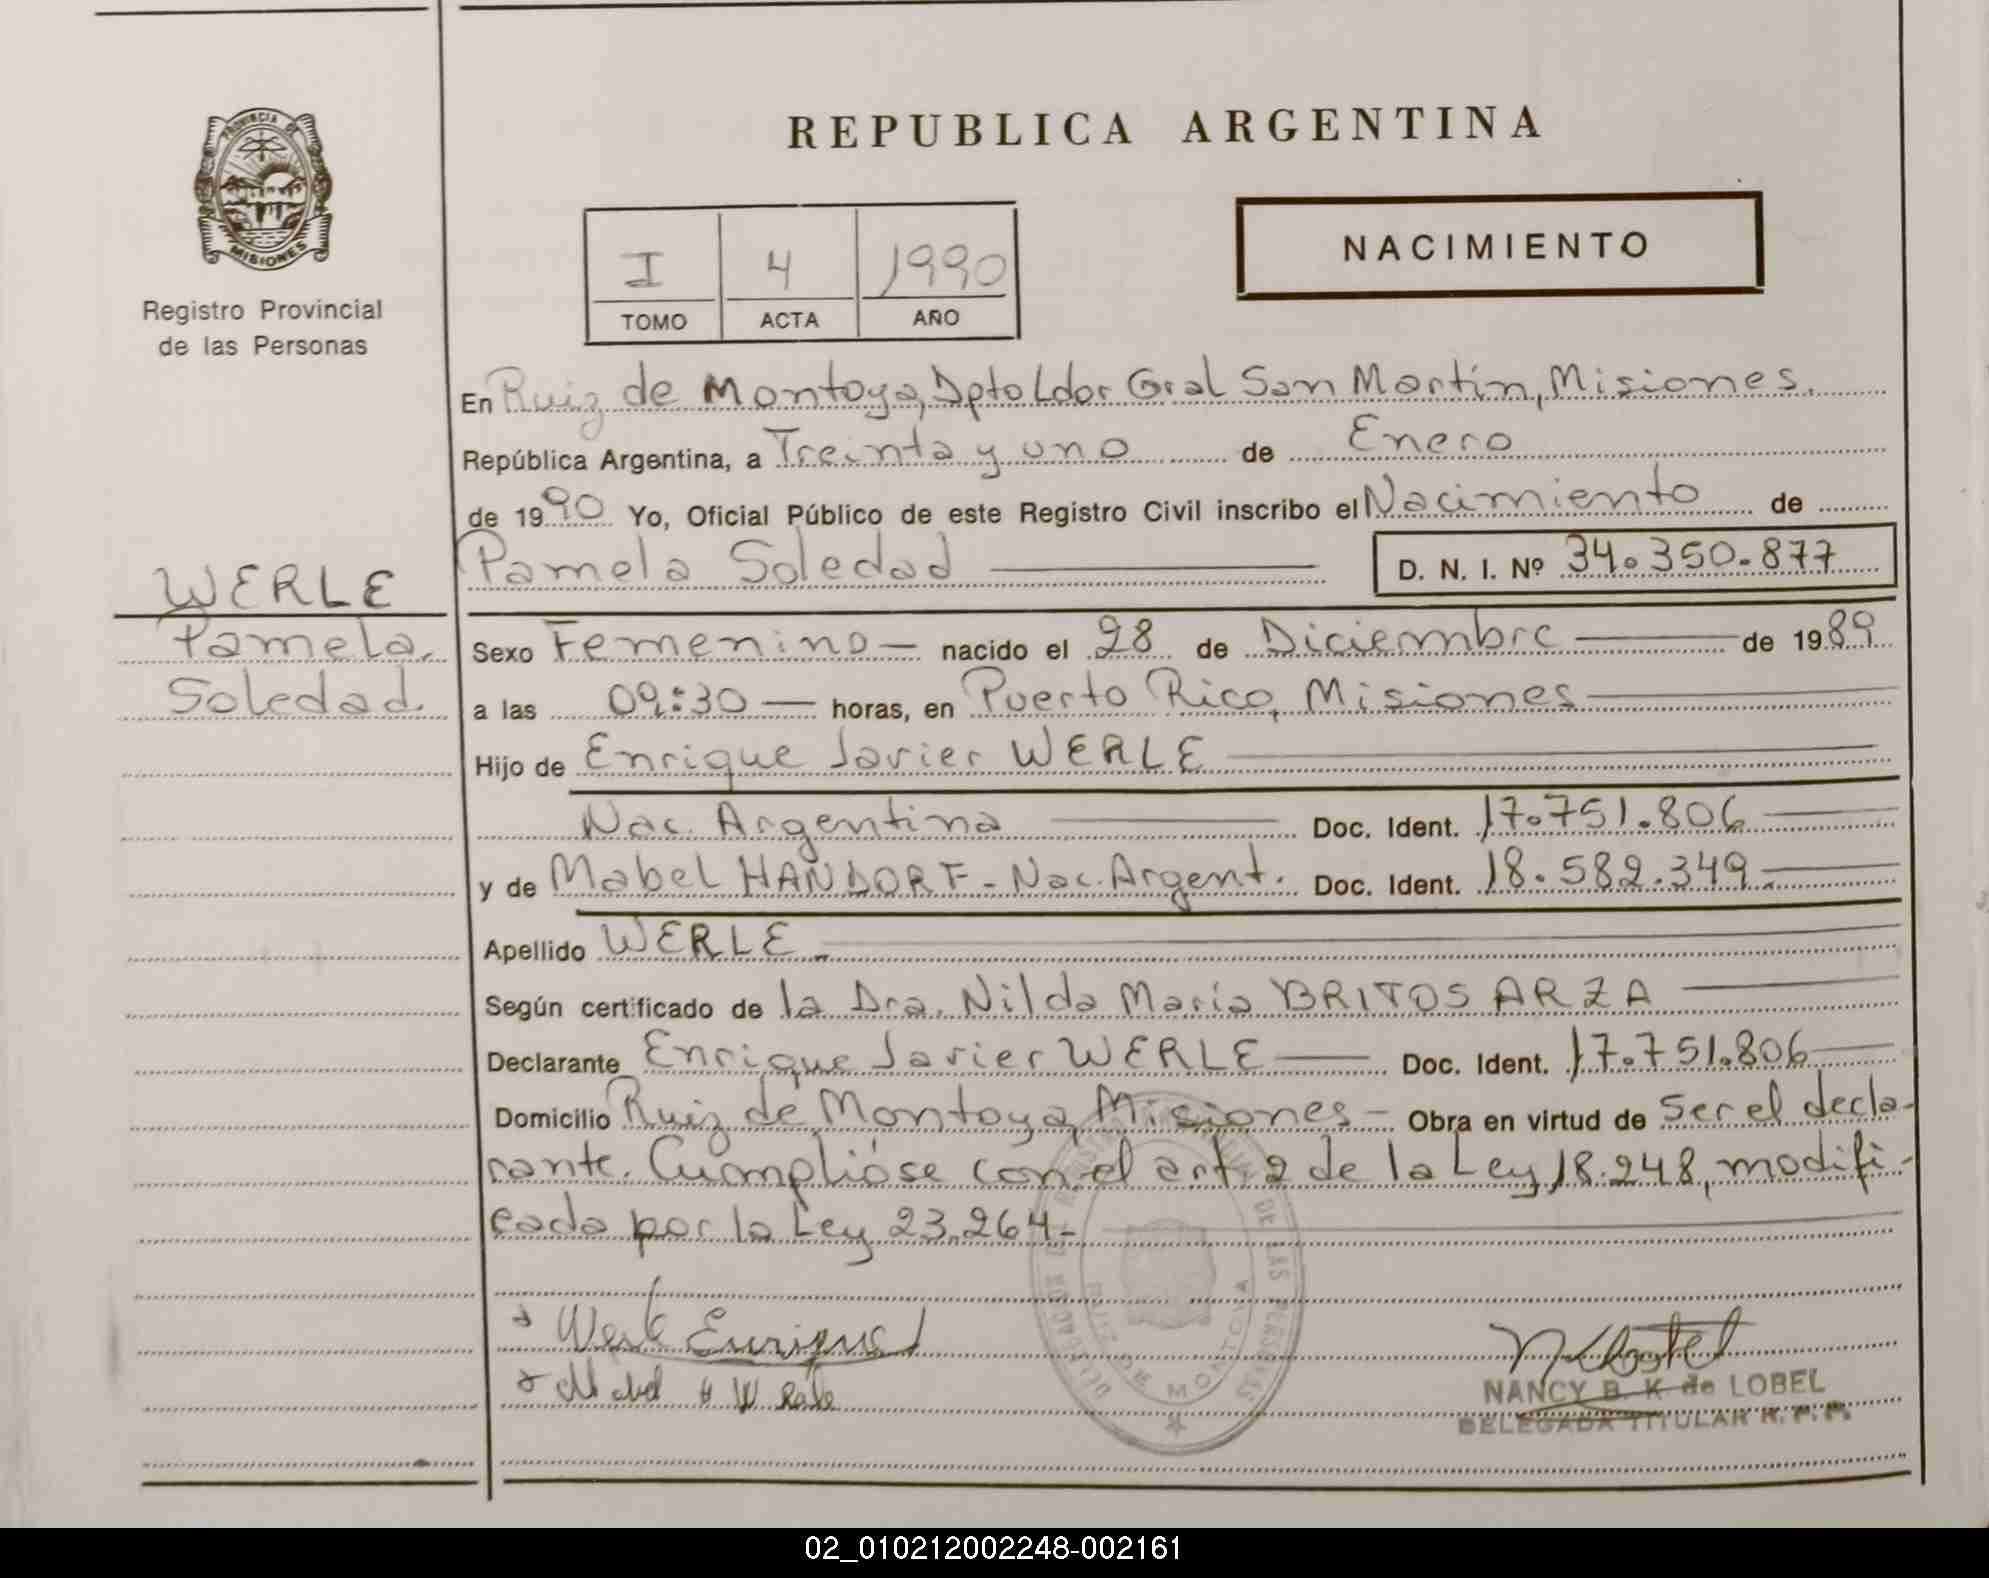 REPUBLICA ARGENTINA
PROVINCIA DE
MISIONES
Registro Provincial
de las Personas
I 4 1990
TOMO ACTA AÑO
NACIMIENTO
En Ruiz de Montoya, Dpto Ldor Gral San Martín, Misiones.
República Argentina, a Treinta y uno de Enero
de 1990 Yo, Oficial Público de este Registro Civil inscribo el Nacimiento de
Pamela Soledad D. N. I. Nº 34.350.877
WERLE
Pamela
Soledad.
Sexo Femenino — nacido el 28 de Diciembre — de 1989
a las 09:30 — horas, en Puerto Rico, Misiones
Hijo de Enrique Javier WERLE
Nac. Argentina — Doc. Ident. 17.751.806
y de Mabel HANDORF - Nac. Argent. Doc. Ident. 18.582.349
Apellido WERLE
Según certificado de la Dra. Nilda María BRITOS ARZA
Declarante Enrique Javier WERLE — Doc. Ident. 17.751.806
Domicilio Ruiz de Montoya, Misiones - Obra en virtud de ser el decla-
rante. Cumplióse con el art. 2 de la Ley 18.248, modifi-
cada por la Ley 23.264-
Werle Enrique
Mabel H W
DE LAS PERSONAS
RUIZ DE MONTOYA
NANCY B. K. de LOBEL
DELEGADA TITULAR R. P. P.
02_010212002248-002161